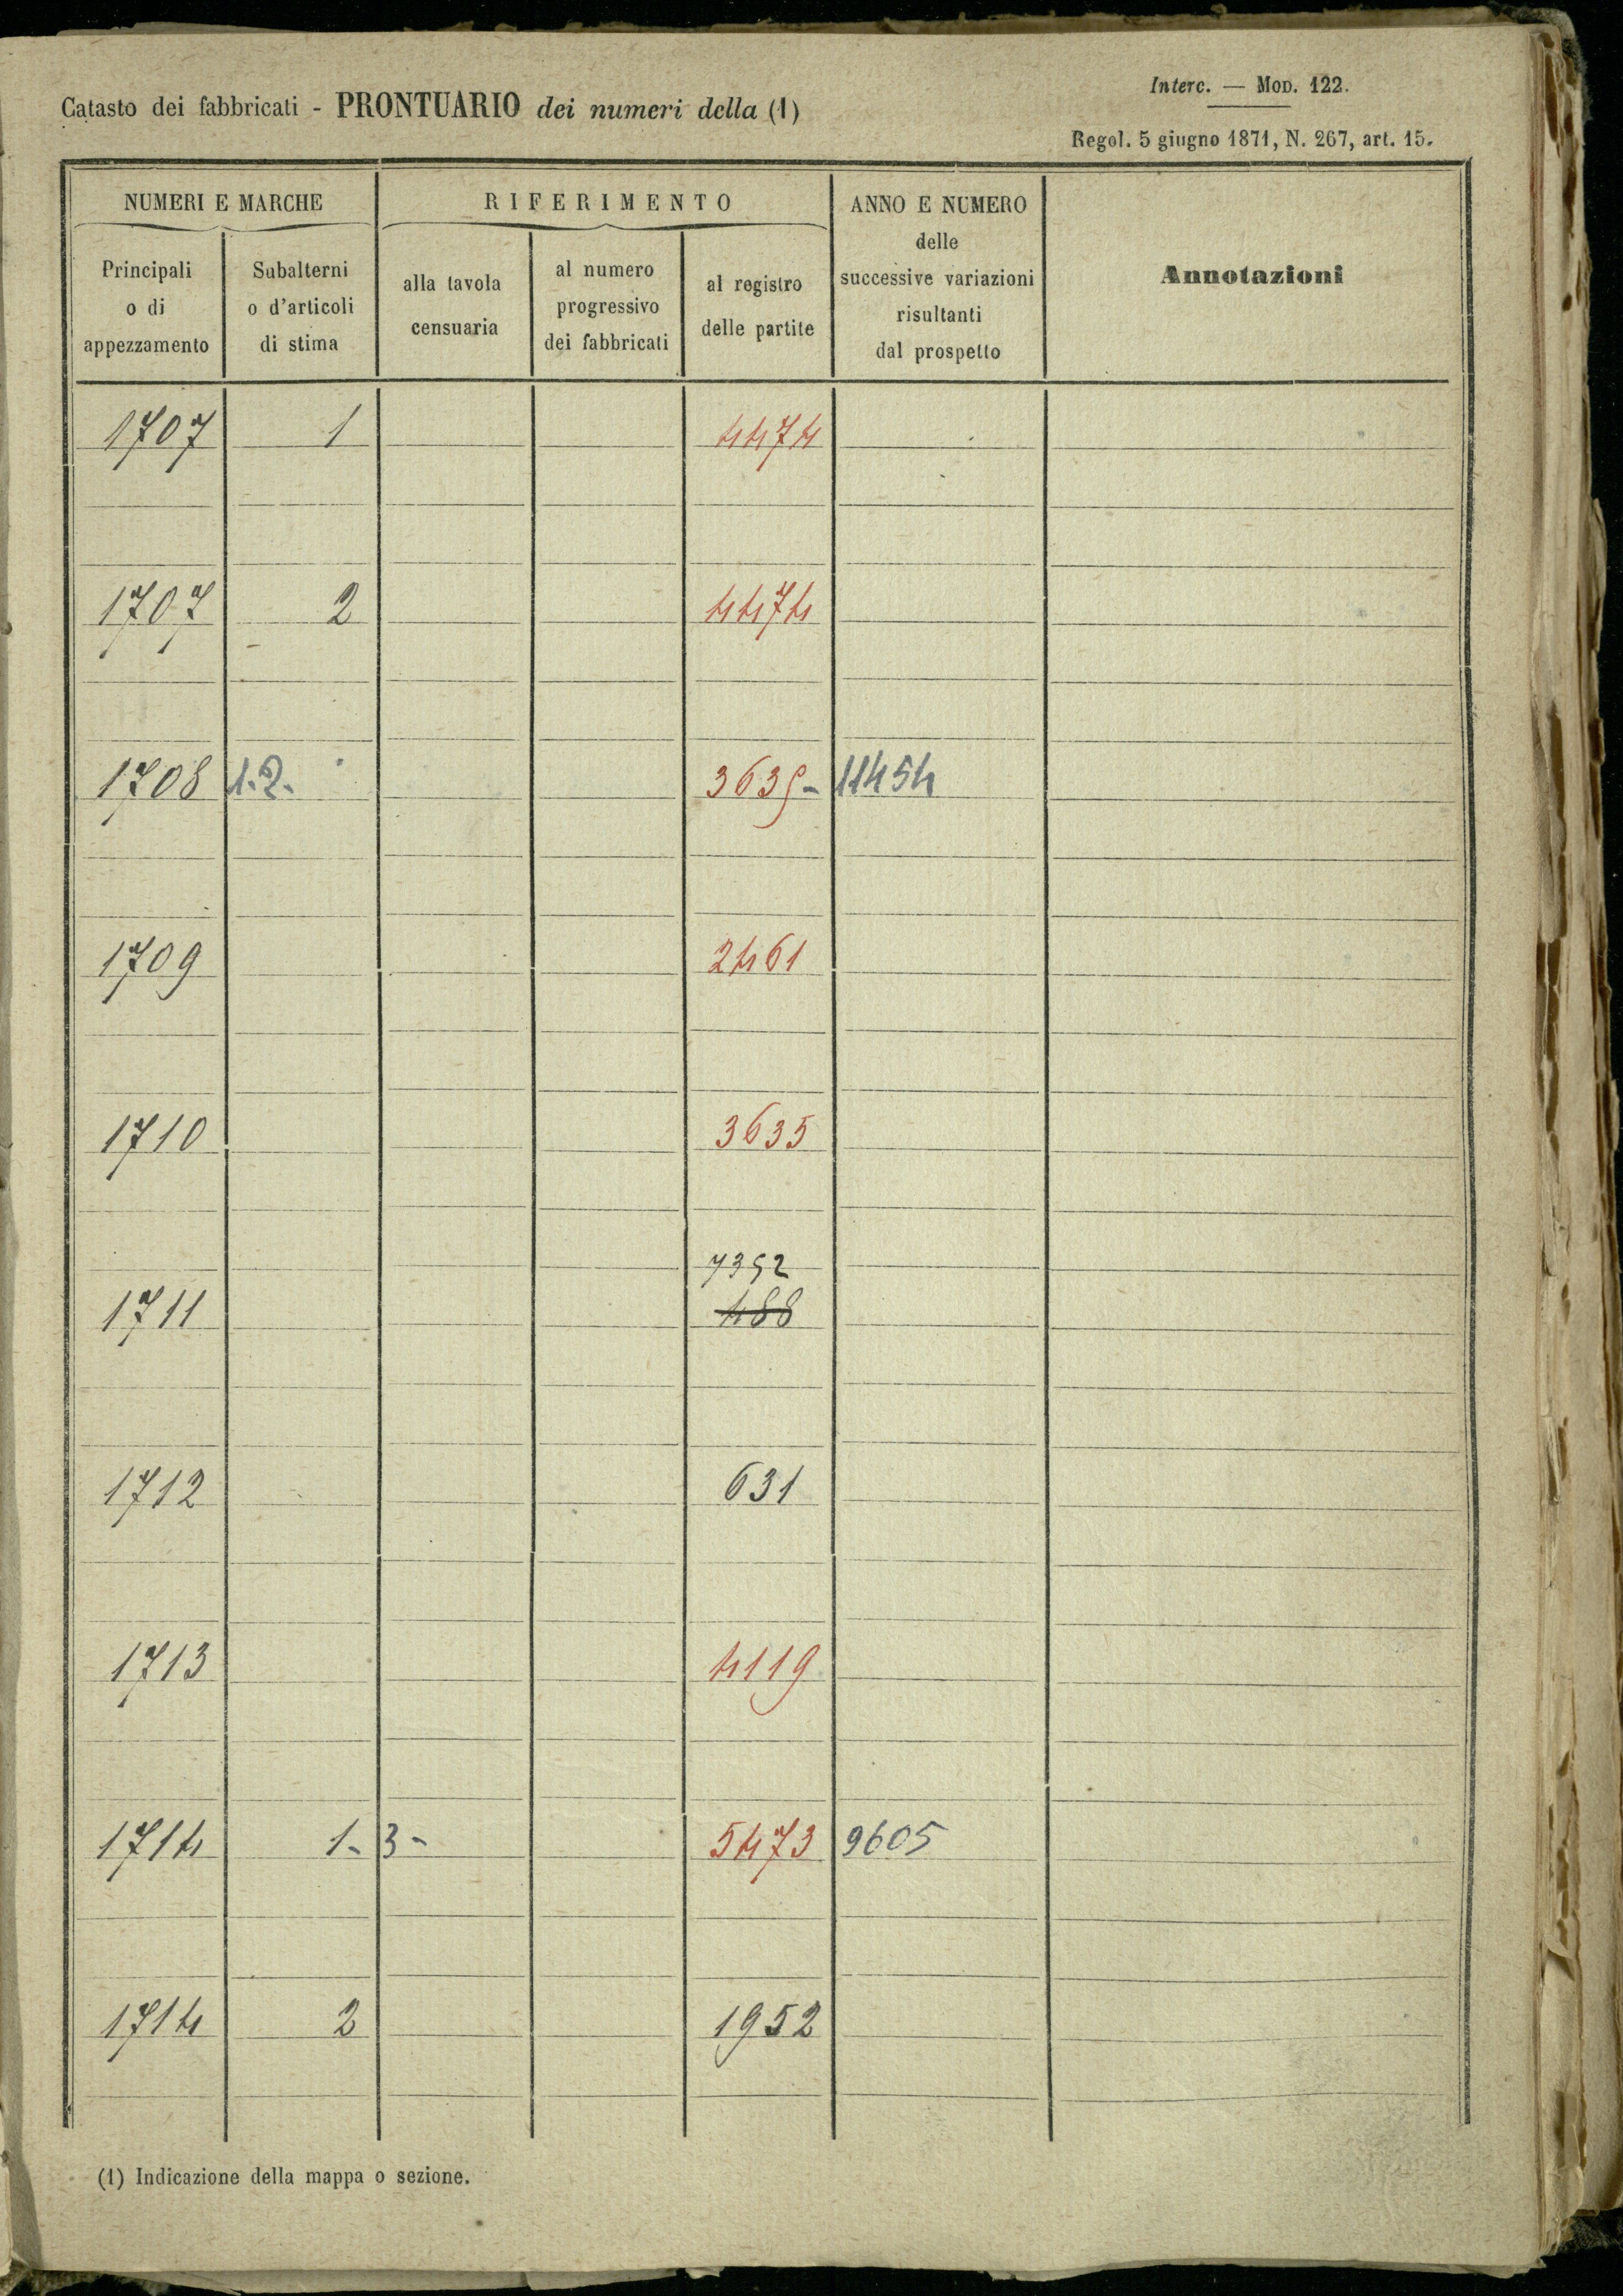 Interc. — Mod. 122.
Catasto dei fabbricati - PRONTUARIO dei numeri della (1)
Regol. 5 giugno 1871, N. 267, art. 15.
NUMERI E MARCHE RIFERIMENTO ANNO E NUMERO delle successive variazioni risultanti dal prospetto Annotazioni
Principali o di appezzamento Subalterni o d'articoli di stima alla tavola censuaria al numero progressivo dei fabbricati al registro delle partite
1707 1 4474
1707 2 4474
1708 1.2. 3635- 11454
1709 2461
1710 3635
7392
1711 488
1712 631
1713 4119
1714 1- 3- 5473 9605
1714 2 1952
(1) Indicazione della mappa o sezione.